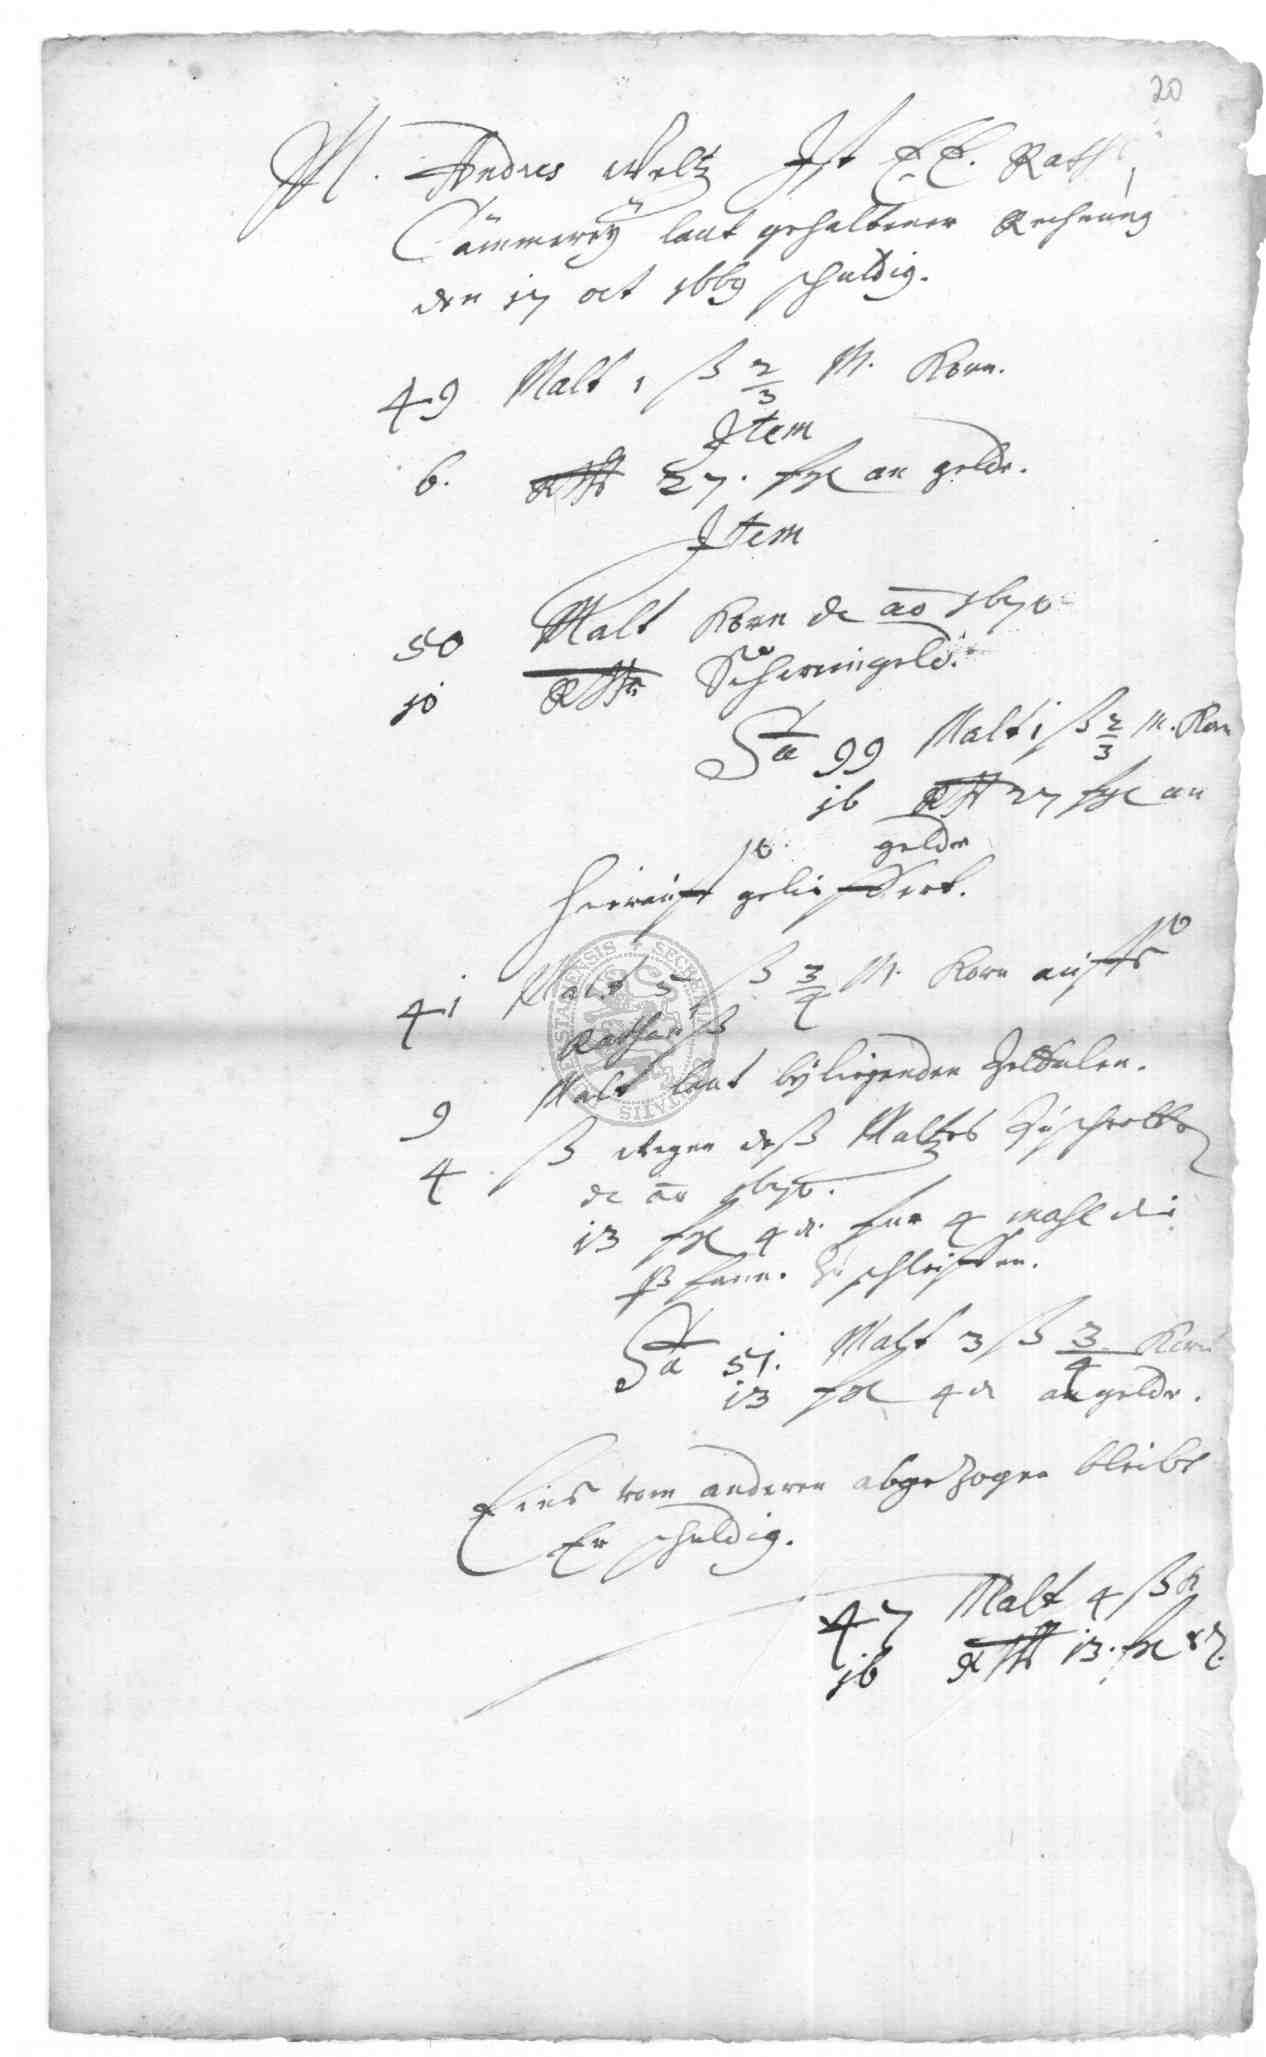 20
M. Andres Weltz Ist E. E. Raths
Cämmereÿ laut gehaltener Rechnung
den 17 oct 1669 schuldig.
49 Malt 1 ß 2/3 M. Korn.
Item
6. Rthl 27. ßgl an gelde.
Item
50 Malt Korn de ao 1670
10 Rthlr Scherwingeld.
Sa 99 Malt 1 ß 2/3 M. Korn
16 Rthl 27 ßgl an
gelde
Hierauff gelieffert.
41 Malt 5 ß 3/4 M. Korn auffs
Rathauß
9 Malt laut bÿliegenden Zettulen.
4. ß wegen deß Maltzes Zuschrotten
de ao 1670.
13 ßgl 4 d. fur 4 mahl die
Pfann. Zu schleiffen.
Sa 51. Malt 3 ß 3/4 Korn
13 ßgl 4 d an gelde.
Eines vom anderen abgezogen bleibt
Er schuldig.
47 Malt 4 ß K
16 Rthl 13. ßgl 8 d.